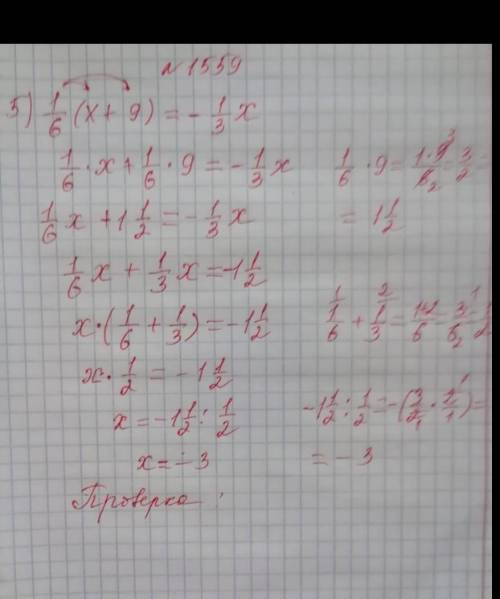 №1559
5) 1/6 (x + 9) = - 1/3 x
1/6 · x + 1/6 · 9 = - 1/3 x    1/6 · 9 = 1·9 3/6 2 = 3/2 =
1/6 x + 1 1/2 = - 1/3 x    = 1 1/2
1/6 x + 1/3 x = -1 1/2
x · (1/6 + 1/3) = -1 1/2    1 1/6 + 2 1/3 = 1+2/6 = 3 1/6 2 = 1/2
x · 1/2 = - 1 1/2
x = -1 1/2 : 1/2    -1 1/2 : 1/2 = -(3/2 1 · 2 1/1) =
x = - 3    = - 3
Проверка :